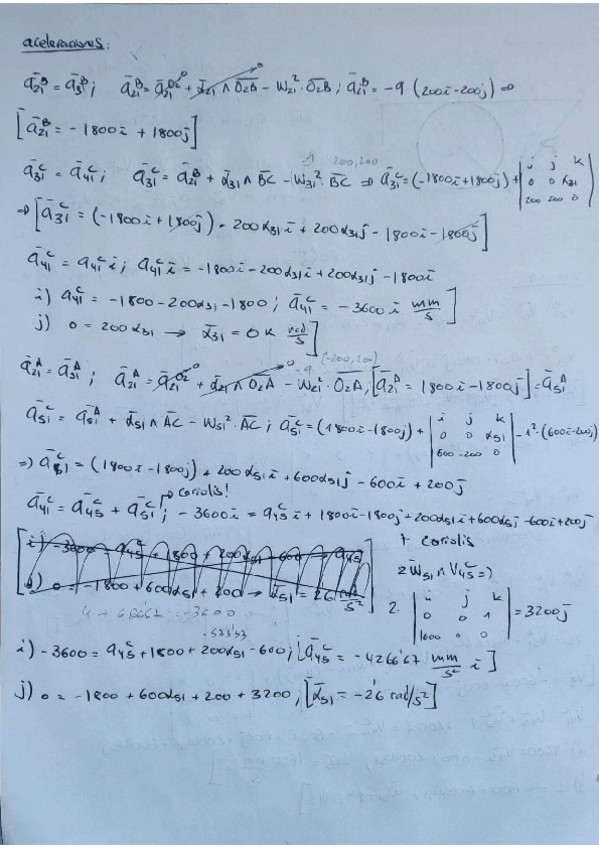 aceleraciones:
ā₂₁ᴮ = ā₃₁ᴮ; ā₂₁ᴮ = ā₂₁ᴼ² + ᾱ₂₁ ∧ O₂B - W₂₁² · O₂B; ā₂₁ᴮ = -9 · (200i - 200j) ⇒
[ā₂₁ᴮ = -1800i + 1800j]
ā₃₁ᶜ = ā₄₁ᶜ; ā₃₁ᶜ = ā₂₁ᴮ + ᾱ₃₁ ∧ BC - W₃₁² · BC ⇒ ā₃₁ᶜ = (-1800i + 1800j) + | i j k | 0 0 α₃₁ | 200 200 0 |
200,200
⇒ [ā₃₁ᶜ = (-1800i + 1800j) - 200α₃₁i + 200α₃₁j - 1800i - 1800j]
ā₄₁ᶜ = a₄₁ᶜ i; a₄₁ᶜ i = -1800i - 200α₃₁i + 200α₃₁j - 1800i
i) a₄₁ᶜ = -1800 - 200α₃₁ - 1800; ā₄₁ᶜ = -3600i mm/s]
j) 0 = 200α₃₁ → ᾱ₃₁ = 0k rad/s]
(-200,200)
ā₂₁ᴬ = ā₅₁ᴬ; ā₂₁ᴬ = ā₂₁ᴼ² + ᾱ₂₁ ∧ O₂A - W₂₁² · O₂A, [ā₂₁ᴬ = 1800i - 1800j] = ā₅₁ᴬ
ā₅₁ᶜ = ā₅₁ᴬ + ᾱ₅₁ ∧ AC - W₅₁² · AC; ā₅₁ᶜ = (1800i - 1800j) + | i j k | 0 0 α₅₁ | 600 -200 0 | - 1² · (600i - 200j)
⇒ ā₅₁ᶜ = (1800i - 1800j) + 200α₅₁i + 600α₅₁j - 600i + 200j
coriolis!
ā₄₁ᶜ = ā₄₅ᶜ + ā₅₁ᶜ; -3600i = a₄₅ᶜ i + 1800i - 1800j + 200α₅₁i + 600α₅₁j - 600i + 200j
+ coriolis
2W̄₅₁ ∧ V̄₄₅ᶜ ⇒
j) 0 = -1800 + 600α₅₁ + 200 → α₅₁ = 2'6 rad/s²
2. | i j k | 0 0 1 | 1600 0 0 | = 3200j
-533'33
i) -3600 = a₄₅ᶜ + 1800 + 200α₅₁ - 600; [ā₄₅ᶜ = -4266'67 mm/s² i]
j) 0 = -1800 + 600α₅₁ + 200 + 3200, [ᾱ₅₁ = -2'6 rad/s²]